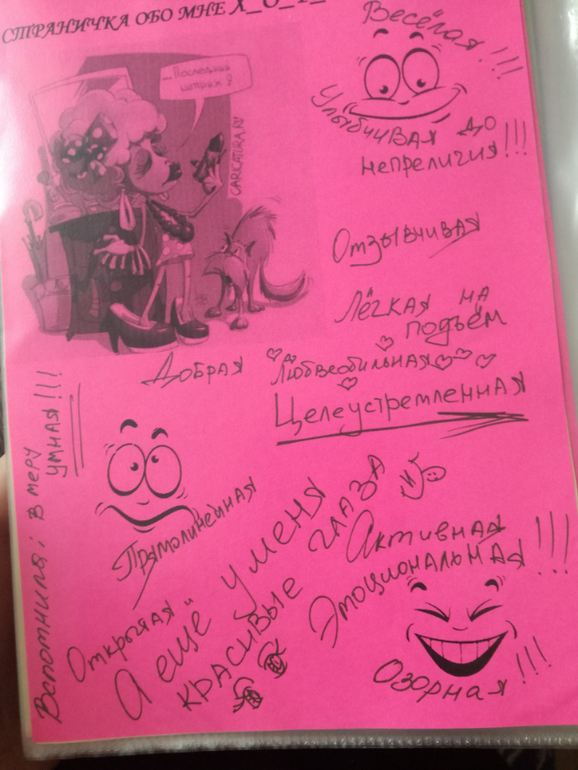 СТРАНИЧКА ОБО МНЕ Х_О_Р_
Весёлая!!!
...Последний
штрих!
CARICATURA.RU
Улыбчивая до
неприличия!!!
Отзывчивая
Лёгкая на
подъём
Добрая
Любвеобильная
Целеустремленная
Вспомнила: в меру
умная!!!
Прямолинейная
Открытая
А ещё у меня
красивые глаза
Активная
Эмоциональная!!!
Озорная!!!